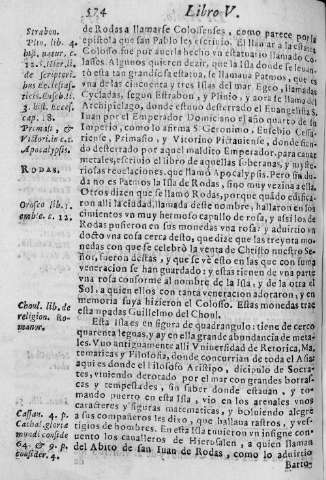 574
Libro V.
de Rodas a llamarse Colossenses, como parece por la
epistola que san Pablo les escriuio. El llamar a la estatua
Colosso fue por auerla hecho vn estatuario llamado Co
losses. Algunos quieren dezir, que la Isla donde se leuan
tò esta tan grandissa estatua, se llamaua Patmos, que es
vna de las cincuenta y tres Islas del mar Egeo, llamadas
Cycladas, segun Estrabon, y Plinio, y aora se llama del
Archipielago, donde estuuo desterrado el Euangelista S.
Iuan por el Emperador Domiciano el año quarto de su
Imperio, como lo afirma S. Geronimo, Eusebio Cessa-
riense, Primasio, y Vitorino Pictauiente, donde sien-
do desterrado por aquel maldito Emperador, para cauar
metales, escriuio el libro de aquellas soberanas, y myste-
riosas reuelaciones, que llamò Apocalypsis. Pero sin du-
da no es Patmos la Isla de Rodas, sino muy vezina a ella.
Otros dizen que se llamò Rodas, porque quãdo edifica-
ron alli la ciudad, llamada deste nombre, hallaron en sus
cimientos vn muy hermoso capullo de rosa, y assi los de
Rodas pusieron en sus monedas vna rosa: y aduirtio vn
docto vna cosa cerca desto, que dize que las treynta mo-
nedas con que se celebrò la venta de Christo nuestro Se-
ñor, fueron destas, y que se vè esto en las que con suma
veneracion se han guardado: y estas tienen de vna parte
vna rosa conforme al nombre de la Isla, y de la otra el
Sol, a quien ellos con tanta veneracion adoraron, y en
memoria suya hizieron el Colosso. Estas monedas trae
estampadas Guillelmo del Choul.
Esta Isla es en figura de quadrangulo: tiene de cerco
quarenta leguas, y ay en ella grande abundancia de meta-
les. Vuo antiguamente alli Vniuersidad de Retorica, Ma
tematicas y Filosofia, donde concurrian de toda el Asia:
aqui es donde el Filosofo Aristipo, dicipulo de Socra-
tes, viniendo derotado por el mar con grandes borras-
cas y tempestades, sin saber donde estauan, y to-
mando puerto en esta Isla, vio en los arenales vnos
caracteres y figuras matematicas, y boluiendo alegre
a sus compañeros les dixo, que hallaua rastros, y ves-
tigios de hombres. En esta Isla tuuieron vn insigne con-
uento los caualleros de Hierusalen, a quien llaman
del Abito de san Iuan de Rodas, como lo aduirtio
Barto-
Strabon.
Plin. lib. 4.
hist. natur. c.
12.
de scriptori-
bus Ecclesias
ticis.
3. hist. Eccles.
cap. 18.
Primasi. &
Victor. in c. 1.
Apocalypsis.
RODAS.
Orosio lib. 1.
c. 12.
Choul. lib. de
religion. Ro-
manor.
Cassan. 4. p.
Cathal. gloriæ
mundi conside
64. & 9. p.
consider. 4.